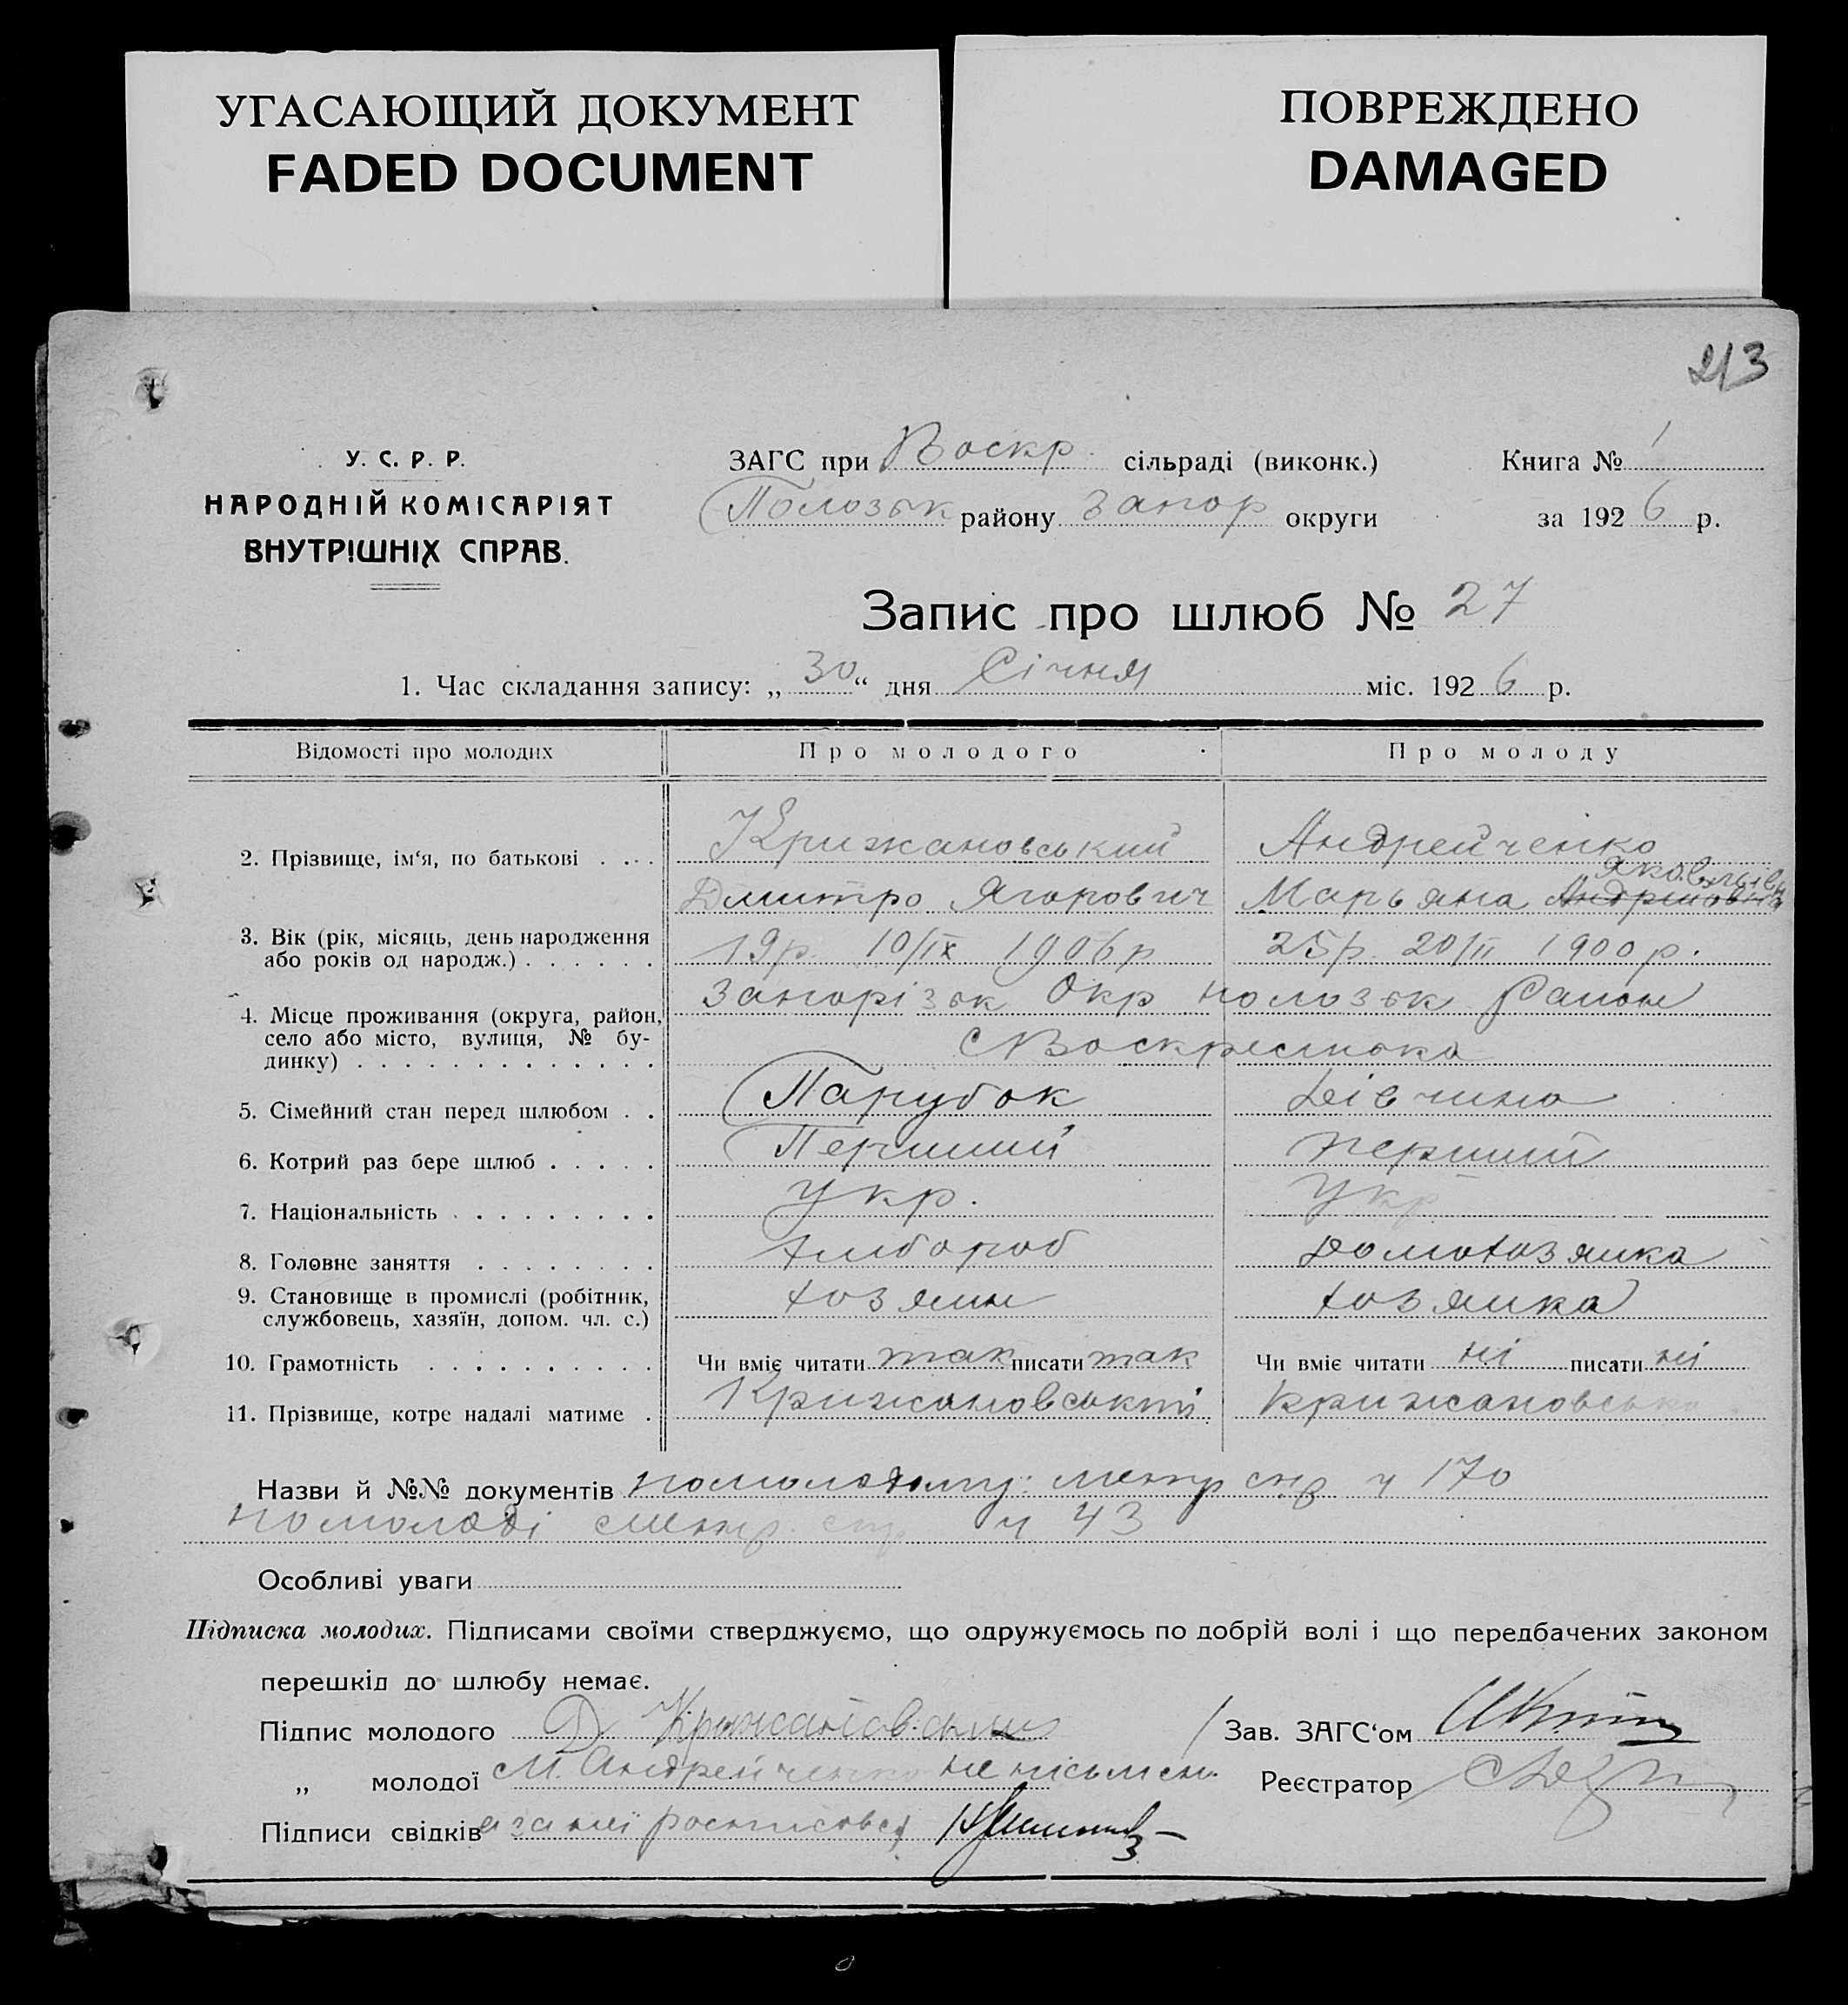 УГАСАЮЩИЙ ДОКУМЕНТ
FADED DOCUMENT
ПОВРЕЖДЕНО
DAMAGED
213
У. С. Р. Р.
НАРОДНІЙ КОМІСАРІЯТ
ВНУТРІШНІХ СПРАВ.
ЗАГС при Воскр. сільраді (виконк.) Книга № 1
Полозьк району Запор округи за 1926 р.
Запис про шлюб № 27
1. Час складання запису: „30“ дня Січня міс. 1926 р.
Відомості про молодих Про молодого Про молоду
2. Прізвище, ім‘я, по батькові . . . . Крижановський Андрейченко
Яковлівна
Дмитро Ягорович Марьяна Андріивна
3. Вік (рік, місяць, день народження
або років од народж.) . . . . . . 19р. 10/ІХ 1906р 25р. 20/ІІ 1900р.
Запорізьк Окр полозьк Район
4. Місце проживання (округа, район,
село або місто, вулиця, № бу-
динку) . . . . . . . . . . . . . С Воскресенка
5. Сімейний стан перед шлюбом . . Парубок дівчина
6. Котрий раз бере шлюб . . . . . Перший перший
7. Національність . . . . . . . . . Укр. Укр
8. Головне заняття . . . . . . . . хлібороб домохозяйка
9. Становище в промислі (робітник,
службовець, хазяїн, допом. чл. с.) хозяин хозяйка
10. Грамотність . . . . . . . . . . Чи вміє читати так писати так Чи вміє читати ні писати ні
11. Прізвище, котре надалі матиме . Крижановський Крижановська
Назви й №№ документів помолодому: метр спр ч 170
помолоді метр. ч 43
Особливі уваги
Підписка молодих. Підписами своїми стверджуємо, що одружуємось по добрій волі і що передбачених законом
перешкід до шлюбу немає.
Підпис молодого Д Крижановський Зав. ЗАГС‘ом
„ молодої М. Андрейченко не письмен. Реєстратор
Підписи свідків а за неї росписовся